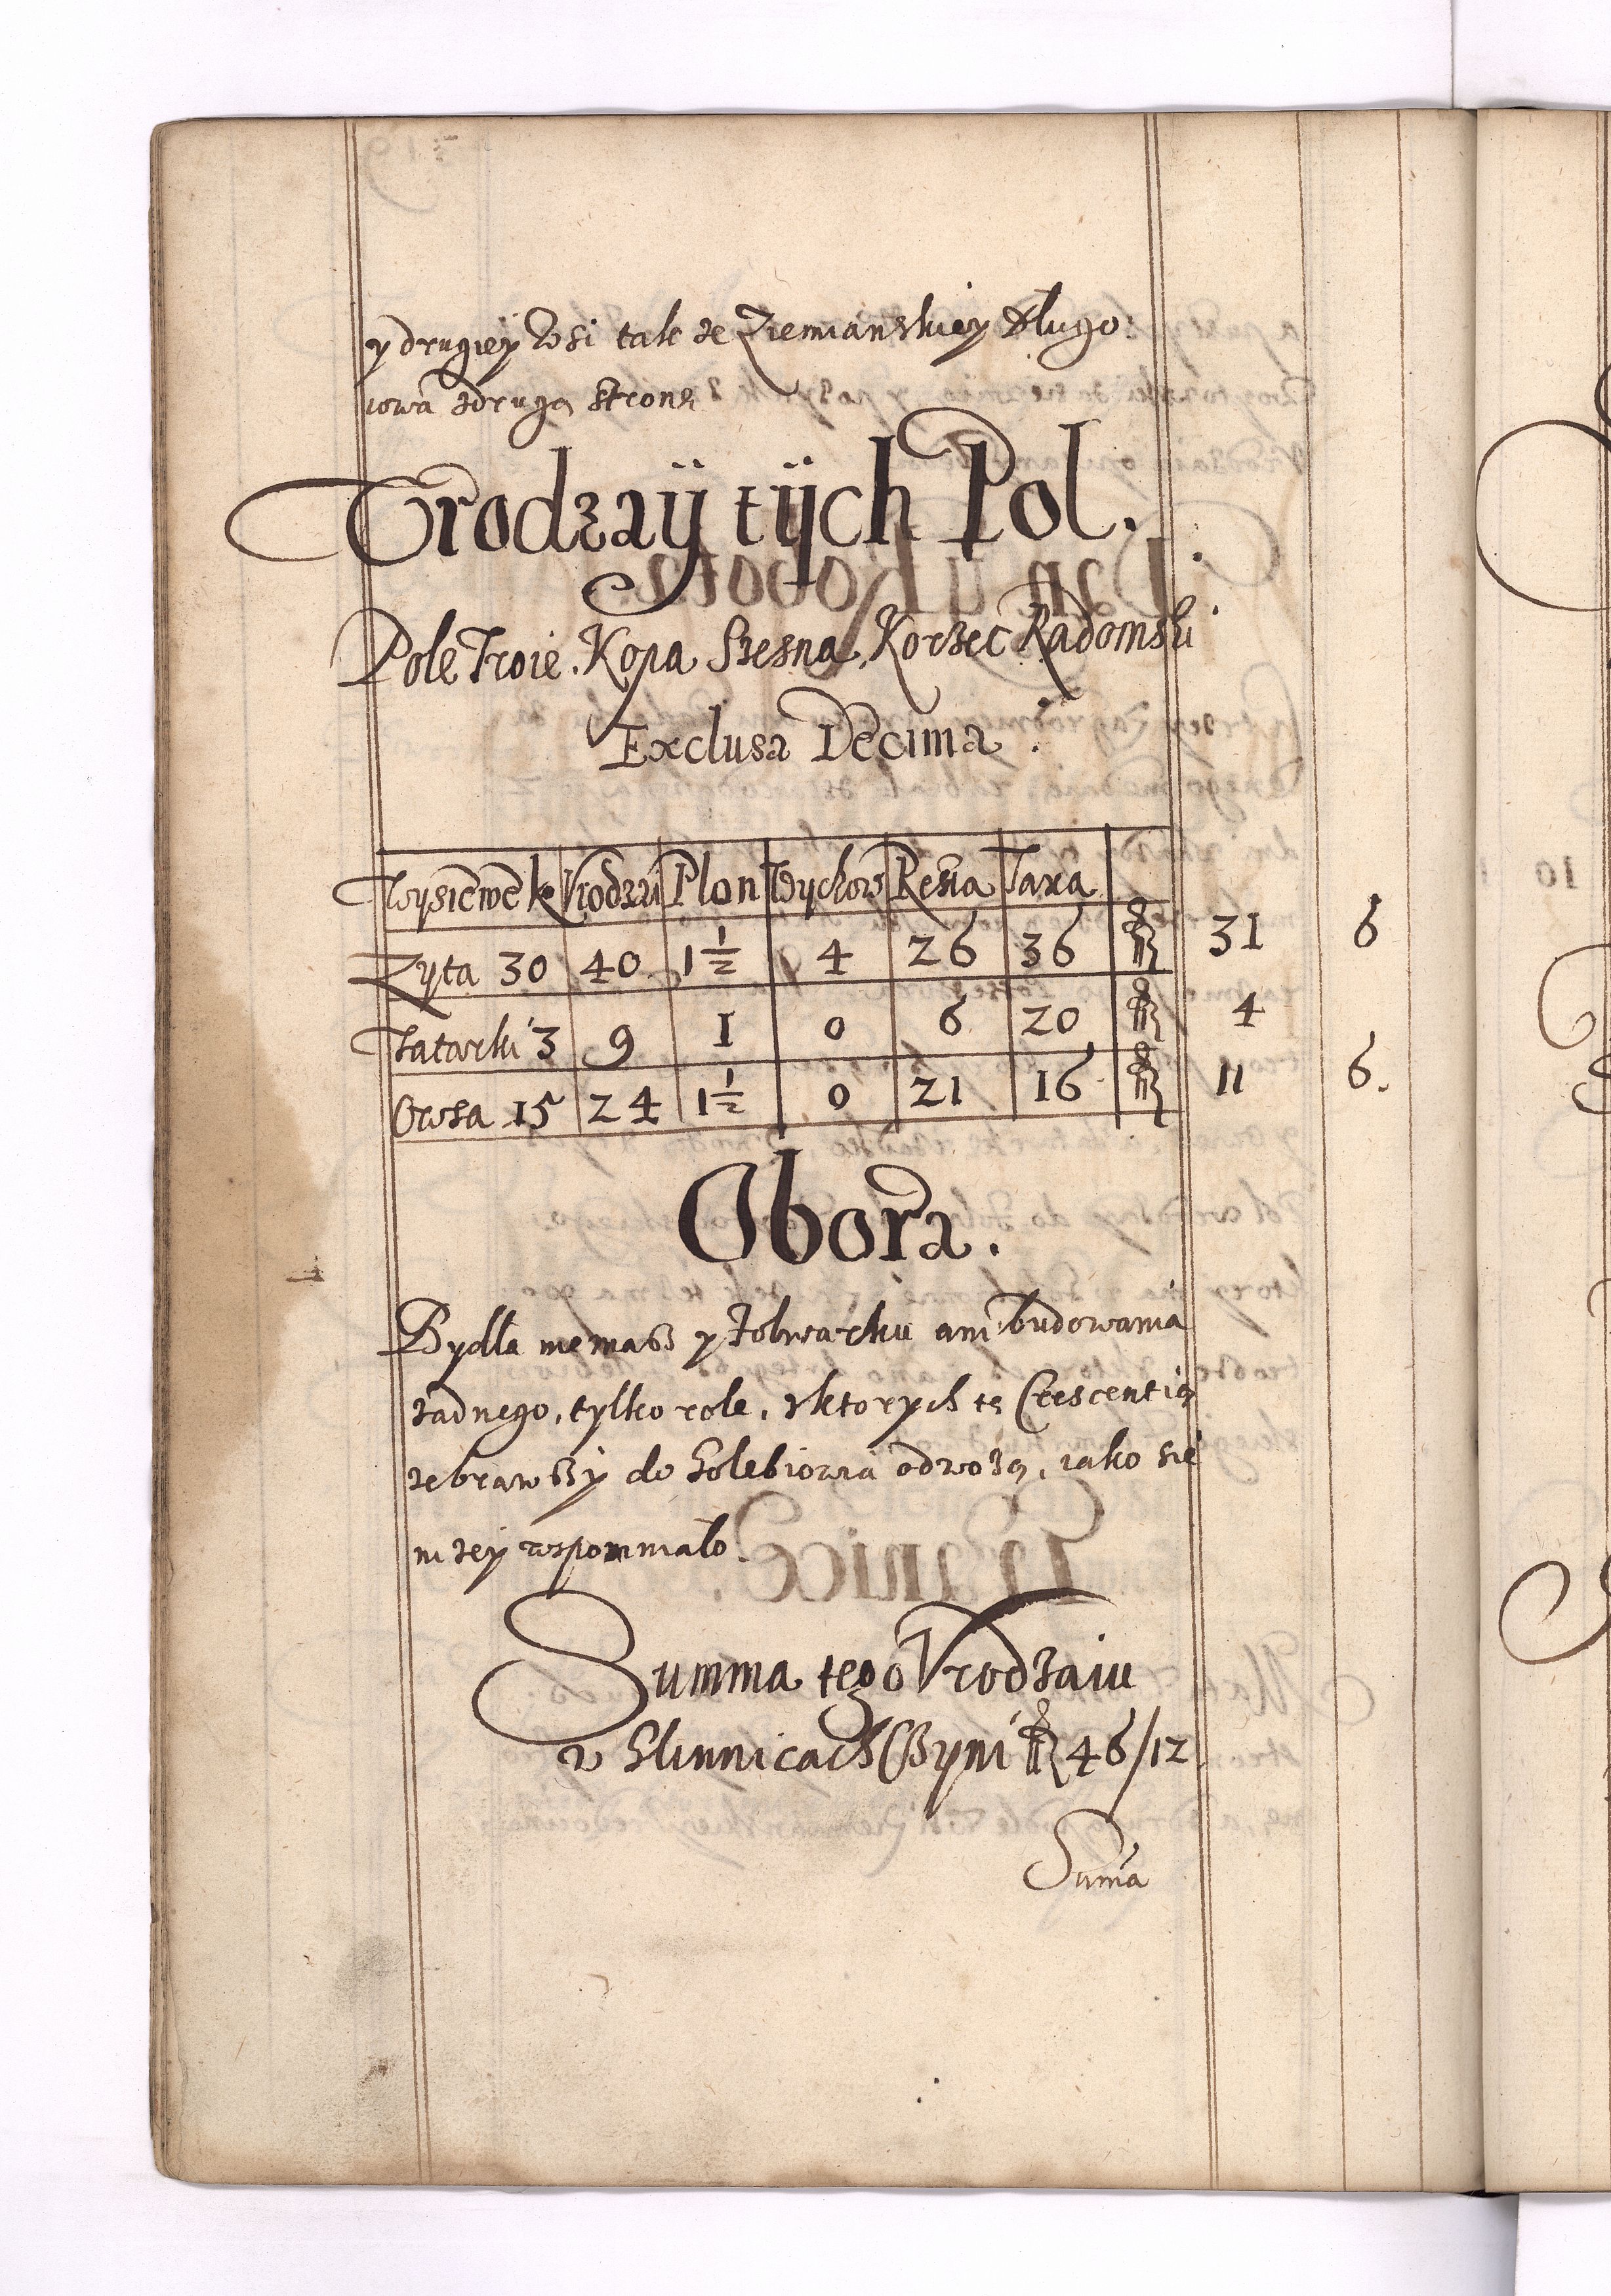 y drugiey Wsi takze Ziemianskiey Długo:
iowa zdrugą stronę
Urodzaÿ tÿch Pol.
Pole Troie. Kopa Szesna, Korzec Radomski
Exclusa Decima.
Wysiewek Vrodzai Plon Wychow Resta Taxa
Zyta 30 40 1 1/2 4 26 36 31 6
Tatarki 3 9 1 0 6 20 4
Owsa 15 24 1 1/2 0 21 16 11 6.
Obora.
Bydła niemasz y Folwarku ani budowania
zadnego, tylko role, zktorych tę Crescentią
zebrawszy do Golebiowa odwożą, iako się
nizey wspomniało
Summa tego Vrodzaiu
w Slinnicach Czyni 46/12
Suma